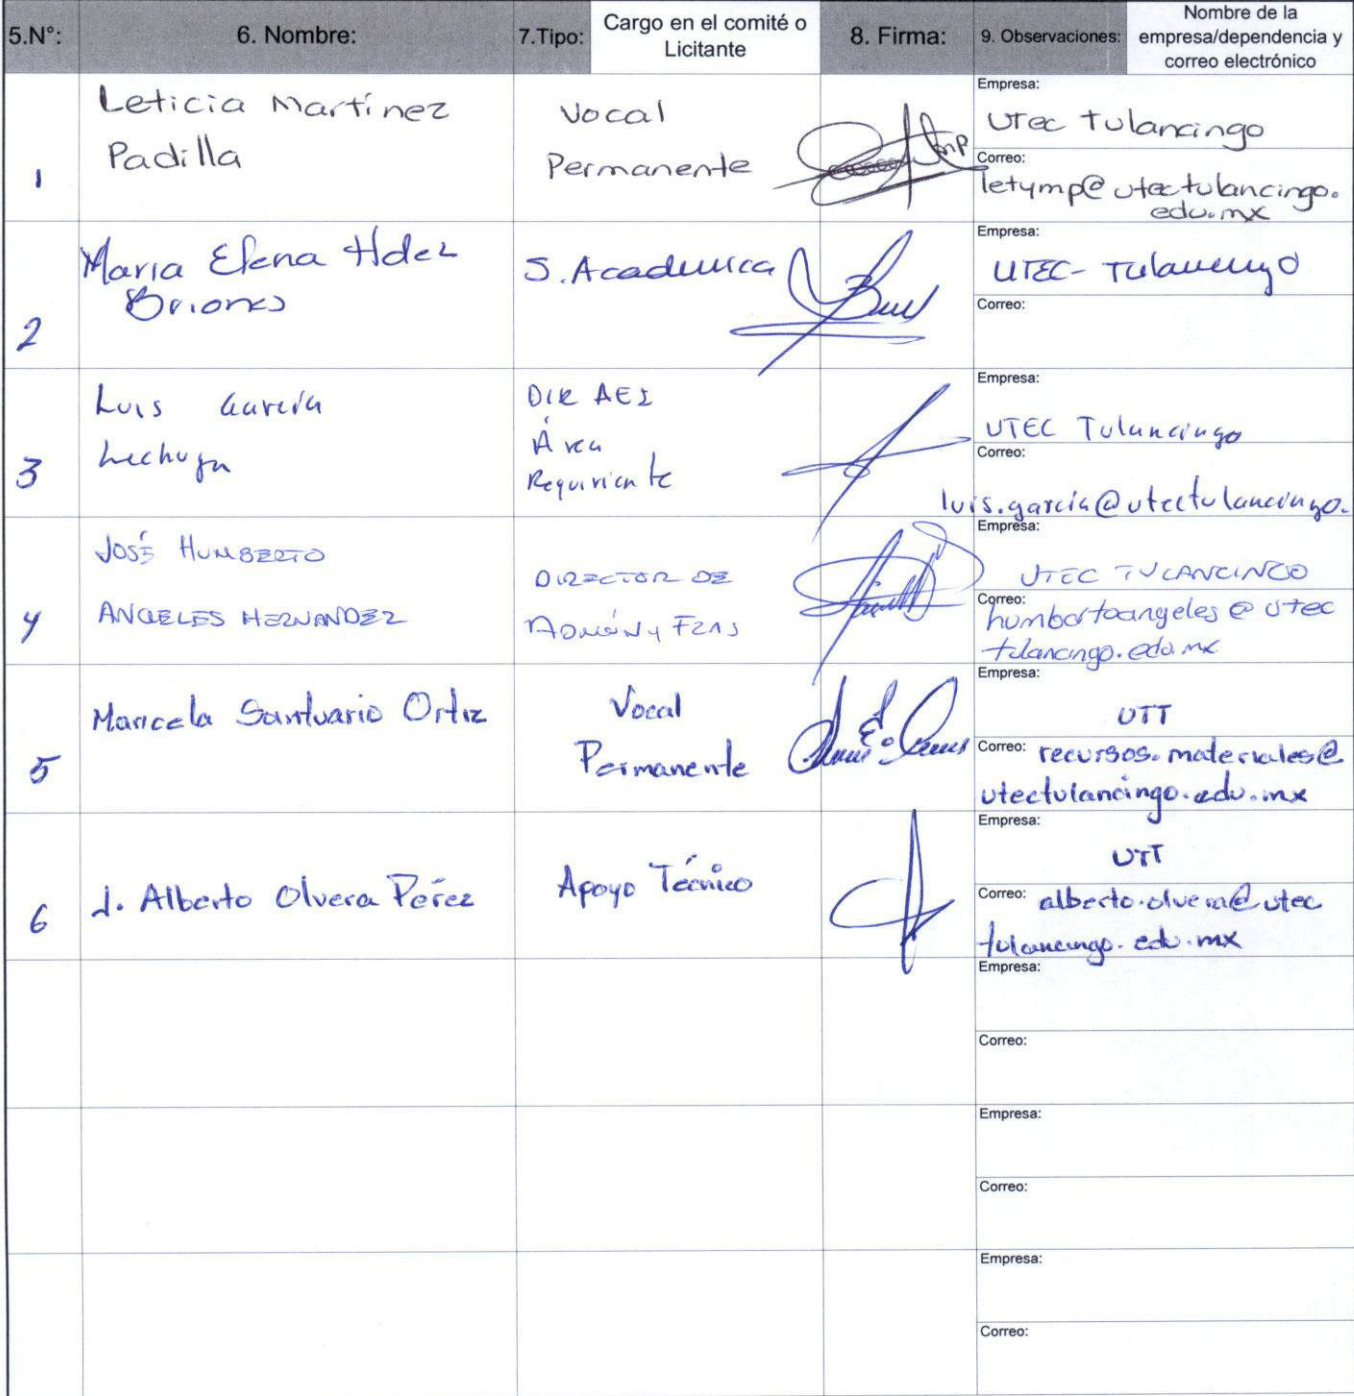 5.N°: 6. Nombre: 7.Tipo: Cargo en el comité o Licitante 8. Firma: 9. Observaciones: Nombre de la empresa/dependencia y correo electrónico
1
Leticia Martínez
Padilla
Vocal
Permanente
Empresa:
Utec Tulancingo
Correo:
letymp@utectulancingo.
edu.mx
2
Maria Elena Hdez
Briones
S. Academica
Empresa:
UTEC- Tulancingo
Correo:
3
Luis García
Lechuga
DIR AEI
Área
Requiriente
Empresa:
UTEC Tulancingo
Correo:
luis.garcia@utectulancingo.
4
José Humberto
Angeles Hernandez
Director de
Admón y Fzas
Empresa:
UTEC Tulancingo
Correo:
humbertoangeles@utec
tulancingo.edu.mx
5
Maricela Santuario Ortiz
Vocal
Permanente
Empresa:
UTT
Correo: recursos.materiales@
utectulancingo.edu.mx
6
J. Alberto Olvera Pérez
Apoyo Técnico
Empresa:
UTT
Correo: alberto.olvera@utec
tulancingo.edu.mx
Empresa:
Correo:
Empresa:
Correo:
Empresa:
Correo: